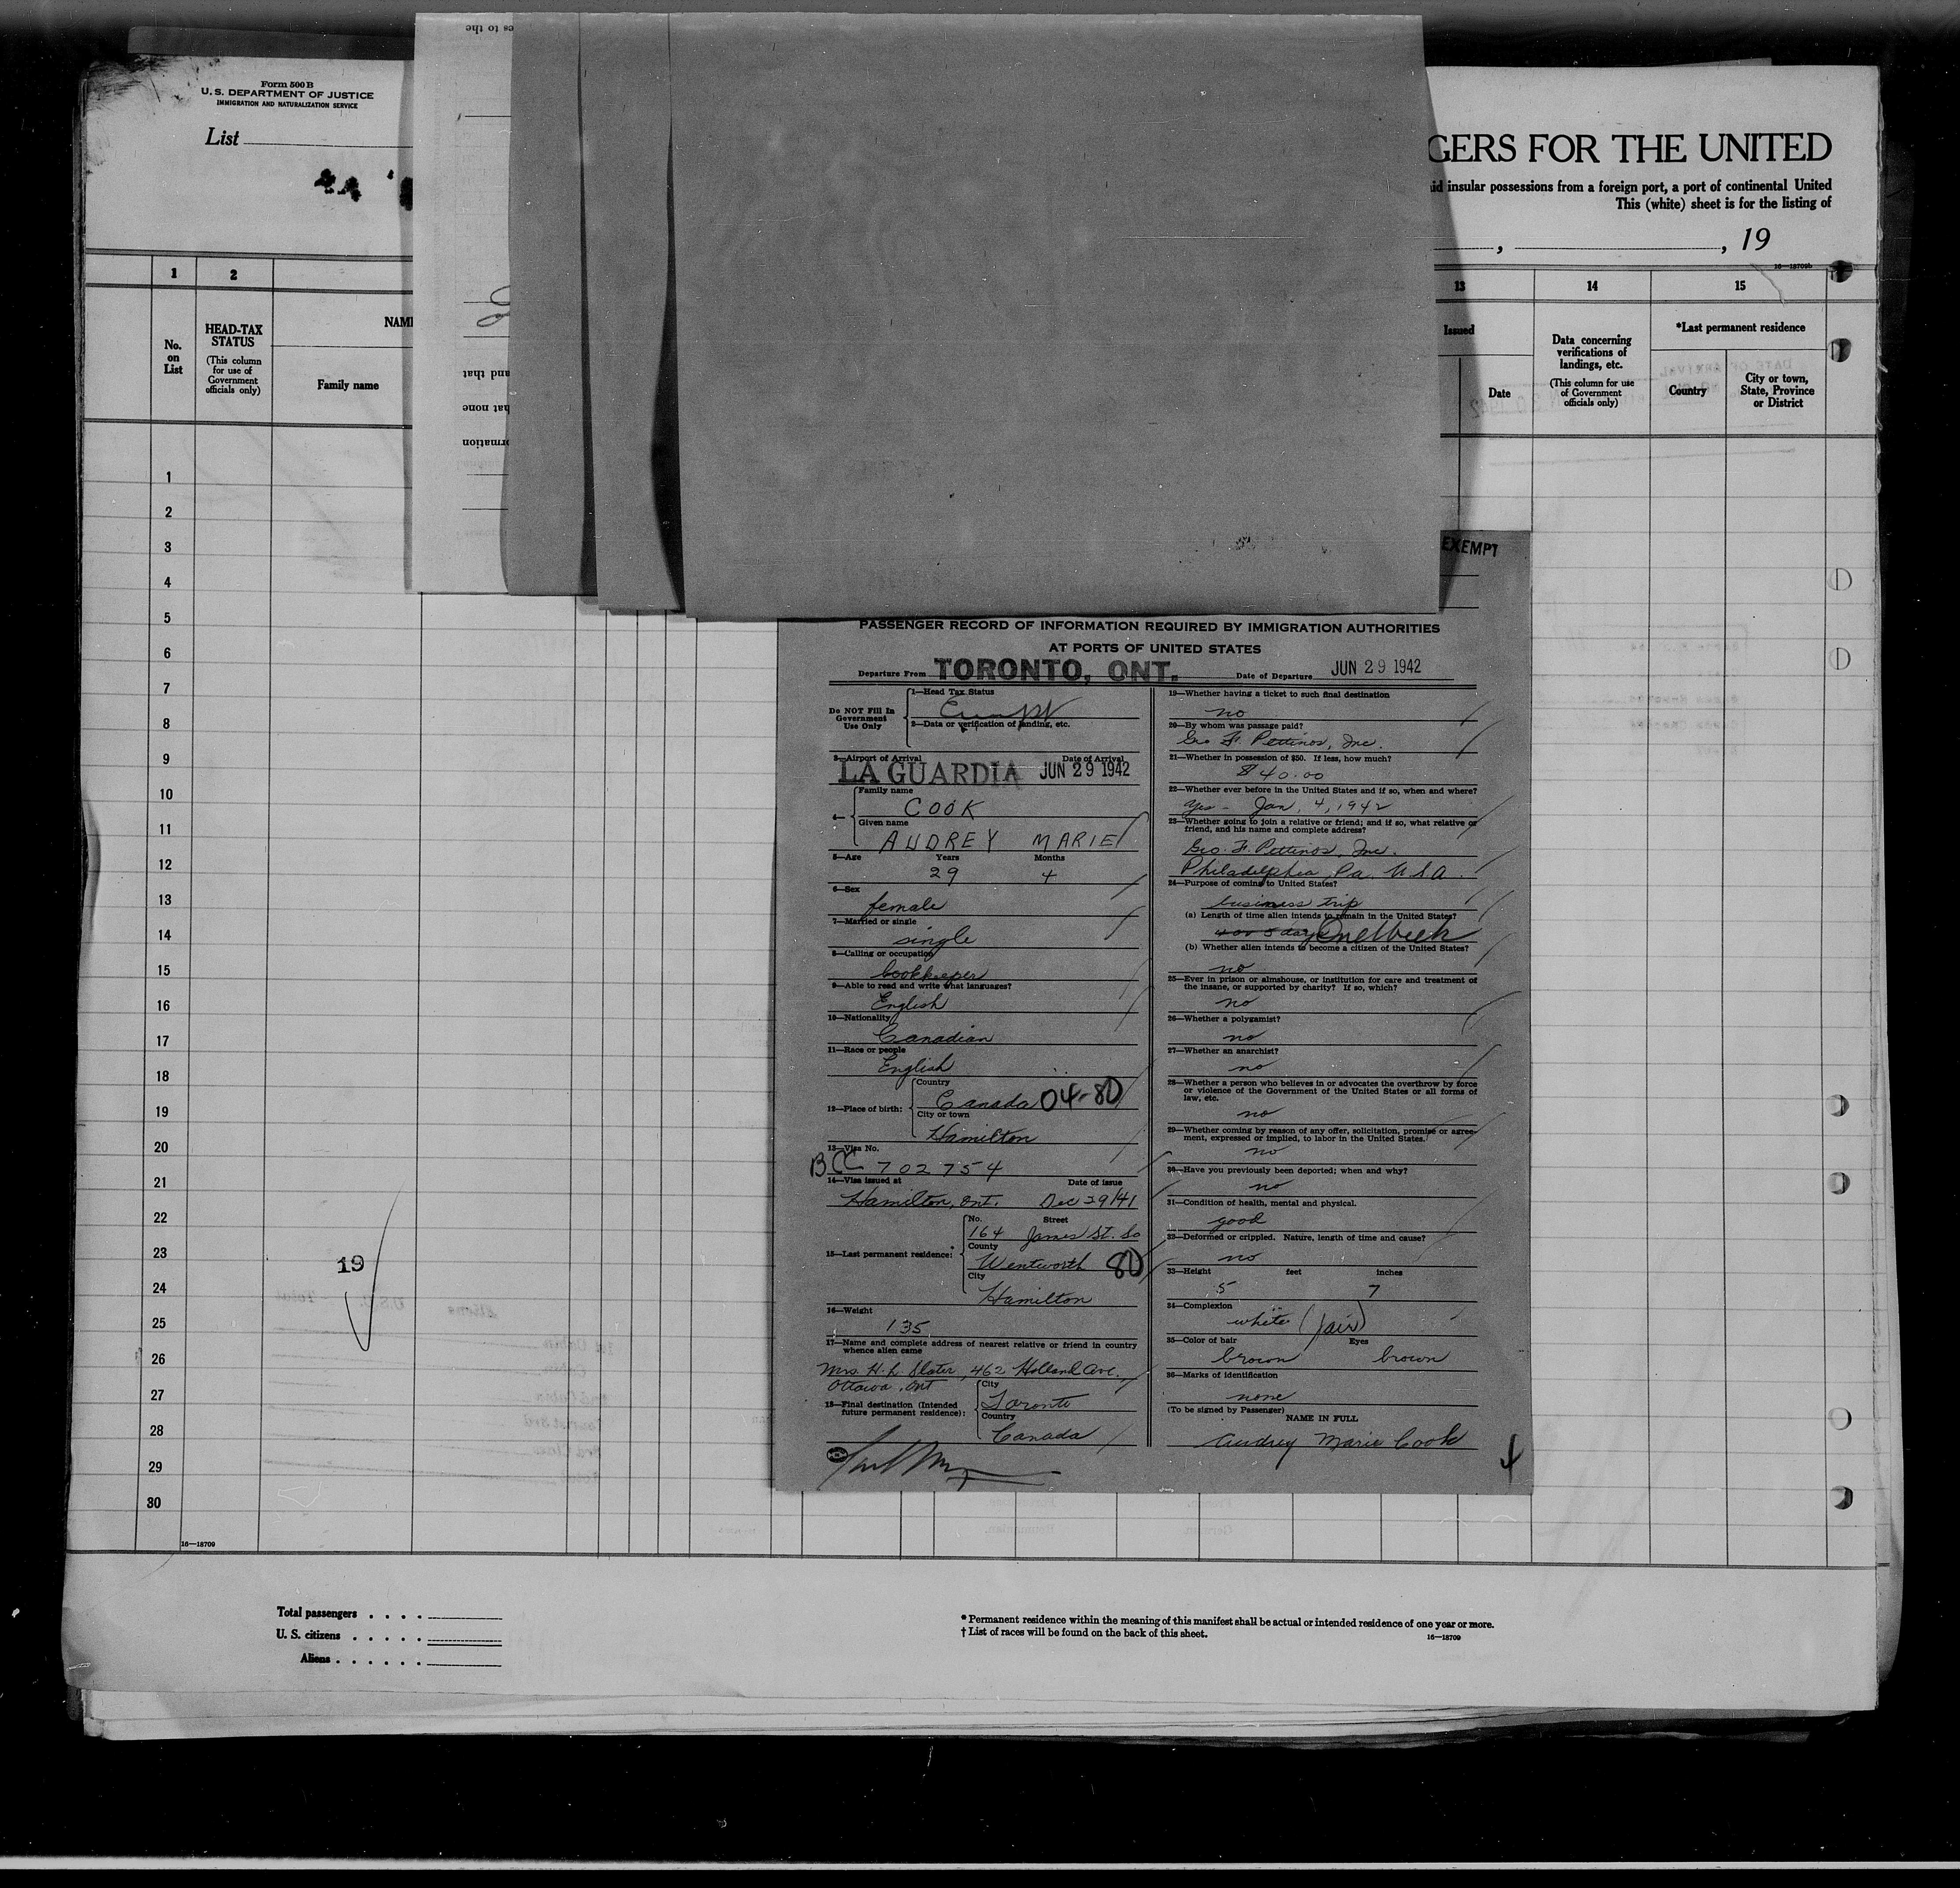 Form 500 B
U. S. DEPARTMENT OF JUSTICE
IMMIGRATION AND NATURALIZATION SERVICE
List
GERS FOR THE UNITED
insular possessions from a foreign port, a port of continental United
This (white) sheet is for the listing of
, , 19
16—18709
1 2 13 14 15
No. on List
HEAD-TAX STATUS
(This column for use of Government officials only)
Family name
Issued
Date
Data concerning verifications of landings, etc.
(This column for use of Government officials only)
*Last permanent residence
Country
City or town, State, Province or District
1
2
3
4
5
6
7
8
9
10
11
12
13
14
15
16
17
18
19
20
21
22
23
24
25
26
27
28
29
30
19
16—18709
EXEMPT
PASSENGER RECORD OF INFORMATION REQUIRED BY IMMIGRATION AUTHORITIES
AT PORTS OF UNITED STATES
Departure From TORONTO, ONT. Date of Departure JUN 29 1942
Do NOT Fill In Government Use Only
1—Head Tax Status
Exempt
2—Data or verification of landing, etc.
3—Airport of Arrival Date of Arrival
LA GUARDIA JUN 29 1942
4—
Family name
COOK
Given name
AUDREY MARIE
5—Age Years Months
29 4
6—Sex
female
7—Married or single
single
8—Calling or occupation
bookkeeper
9—Able to read and write what languages?
English
10—Nationality
Canadian
11—Race or people
English
12—Place of birth:
Country
Canada 04-80
City or town
Hamilton
13—Visa No.
BCC 702754
14—Visa issued at Date of issue
Hamilton, Ont. Dec 29/41
15—Last permanent residence:
No. Street
164 James St. So
County
Wentworth 80
City
Hamilton
16—Weight
135
17—Name and complete address of nearest relative or friend in country
whence alien came
Mrs. H. L. Slater, 462 Holland Ave.
Ottawa, Ont
18—Final destination (Intended
future permanent residence):
City
Toronto
Country
Canada
19—Whether having a ticket to such final destination
no
20—By whom was passage paid?
Geo. F. Pettinos, Inc.
21—Whether in possession of $50. If less, how much?
$40.00
22—Whether ever before in the United States and if so, when and where?
Yes - Jan. 4, 1942
23—Whether going to join a relative or friend; and if so, what relative or
friend, and his name and complete address?
Geo. F. Pettinos, Inc.
Philadelphia, Pa. U S A.
24—Purpose of coming to United States?
business trip
(a) Length of time alien intends to remain in the United States?
4 or 5 days One Week
(b) Whether alien intends to become a citizen of the United States?
no
25—Ever in prison or almshouse, or institution for care and treatment of
the insane, or supported by charity? If so, which?
no
26—Whether a polygamist?
no
27—Whether an anarchist?
no
28—Whether a person who believes in or advocates the overthrow by force
or violence of the Government of the United States or all forms of
law, etc.
no
29—Whether coming by reason of any offer, solicitation, promise or agree-
ment, expressed or implied, to labor in the United States.
no
30—Have you previously been deported; when and why?
no
31—Condition of health, mental and physical.
good
32—Deformed or crippled. Nature, length of time and cause?
no
33—Height feet inches
5 7
34—Complexion
white (fair)
35—Color of hair Eyes
brown brown
36—Marks of identification
none
(To be signed by Passenger)
NAME IN FULL
Audrey Marie Cook
Total passengers . . . .
U. S. citizens . . . . .
Aliens . . . . . .
* Permanent residence within the meaning of this manifest shall be actual or intended residence of one year or more.
† List of races will be found on the back of this sheet.
16—18709